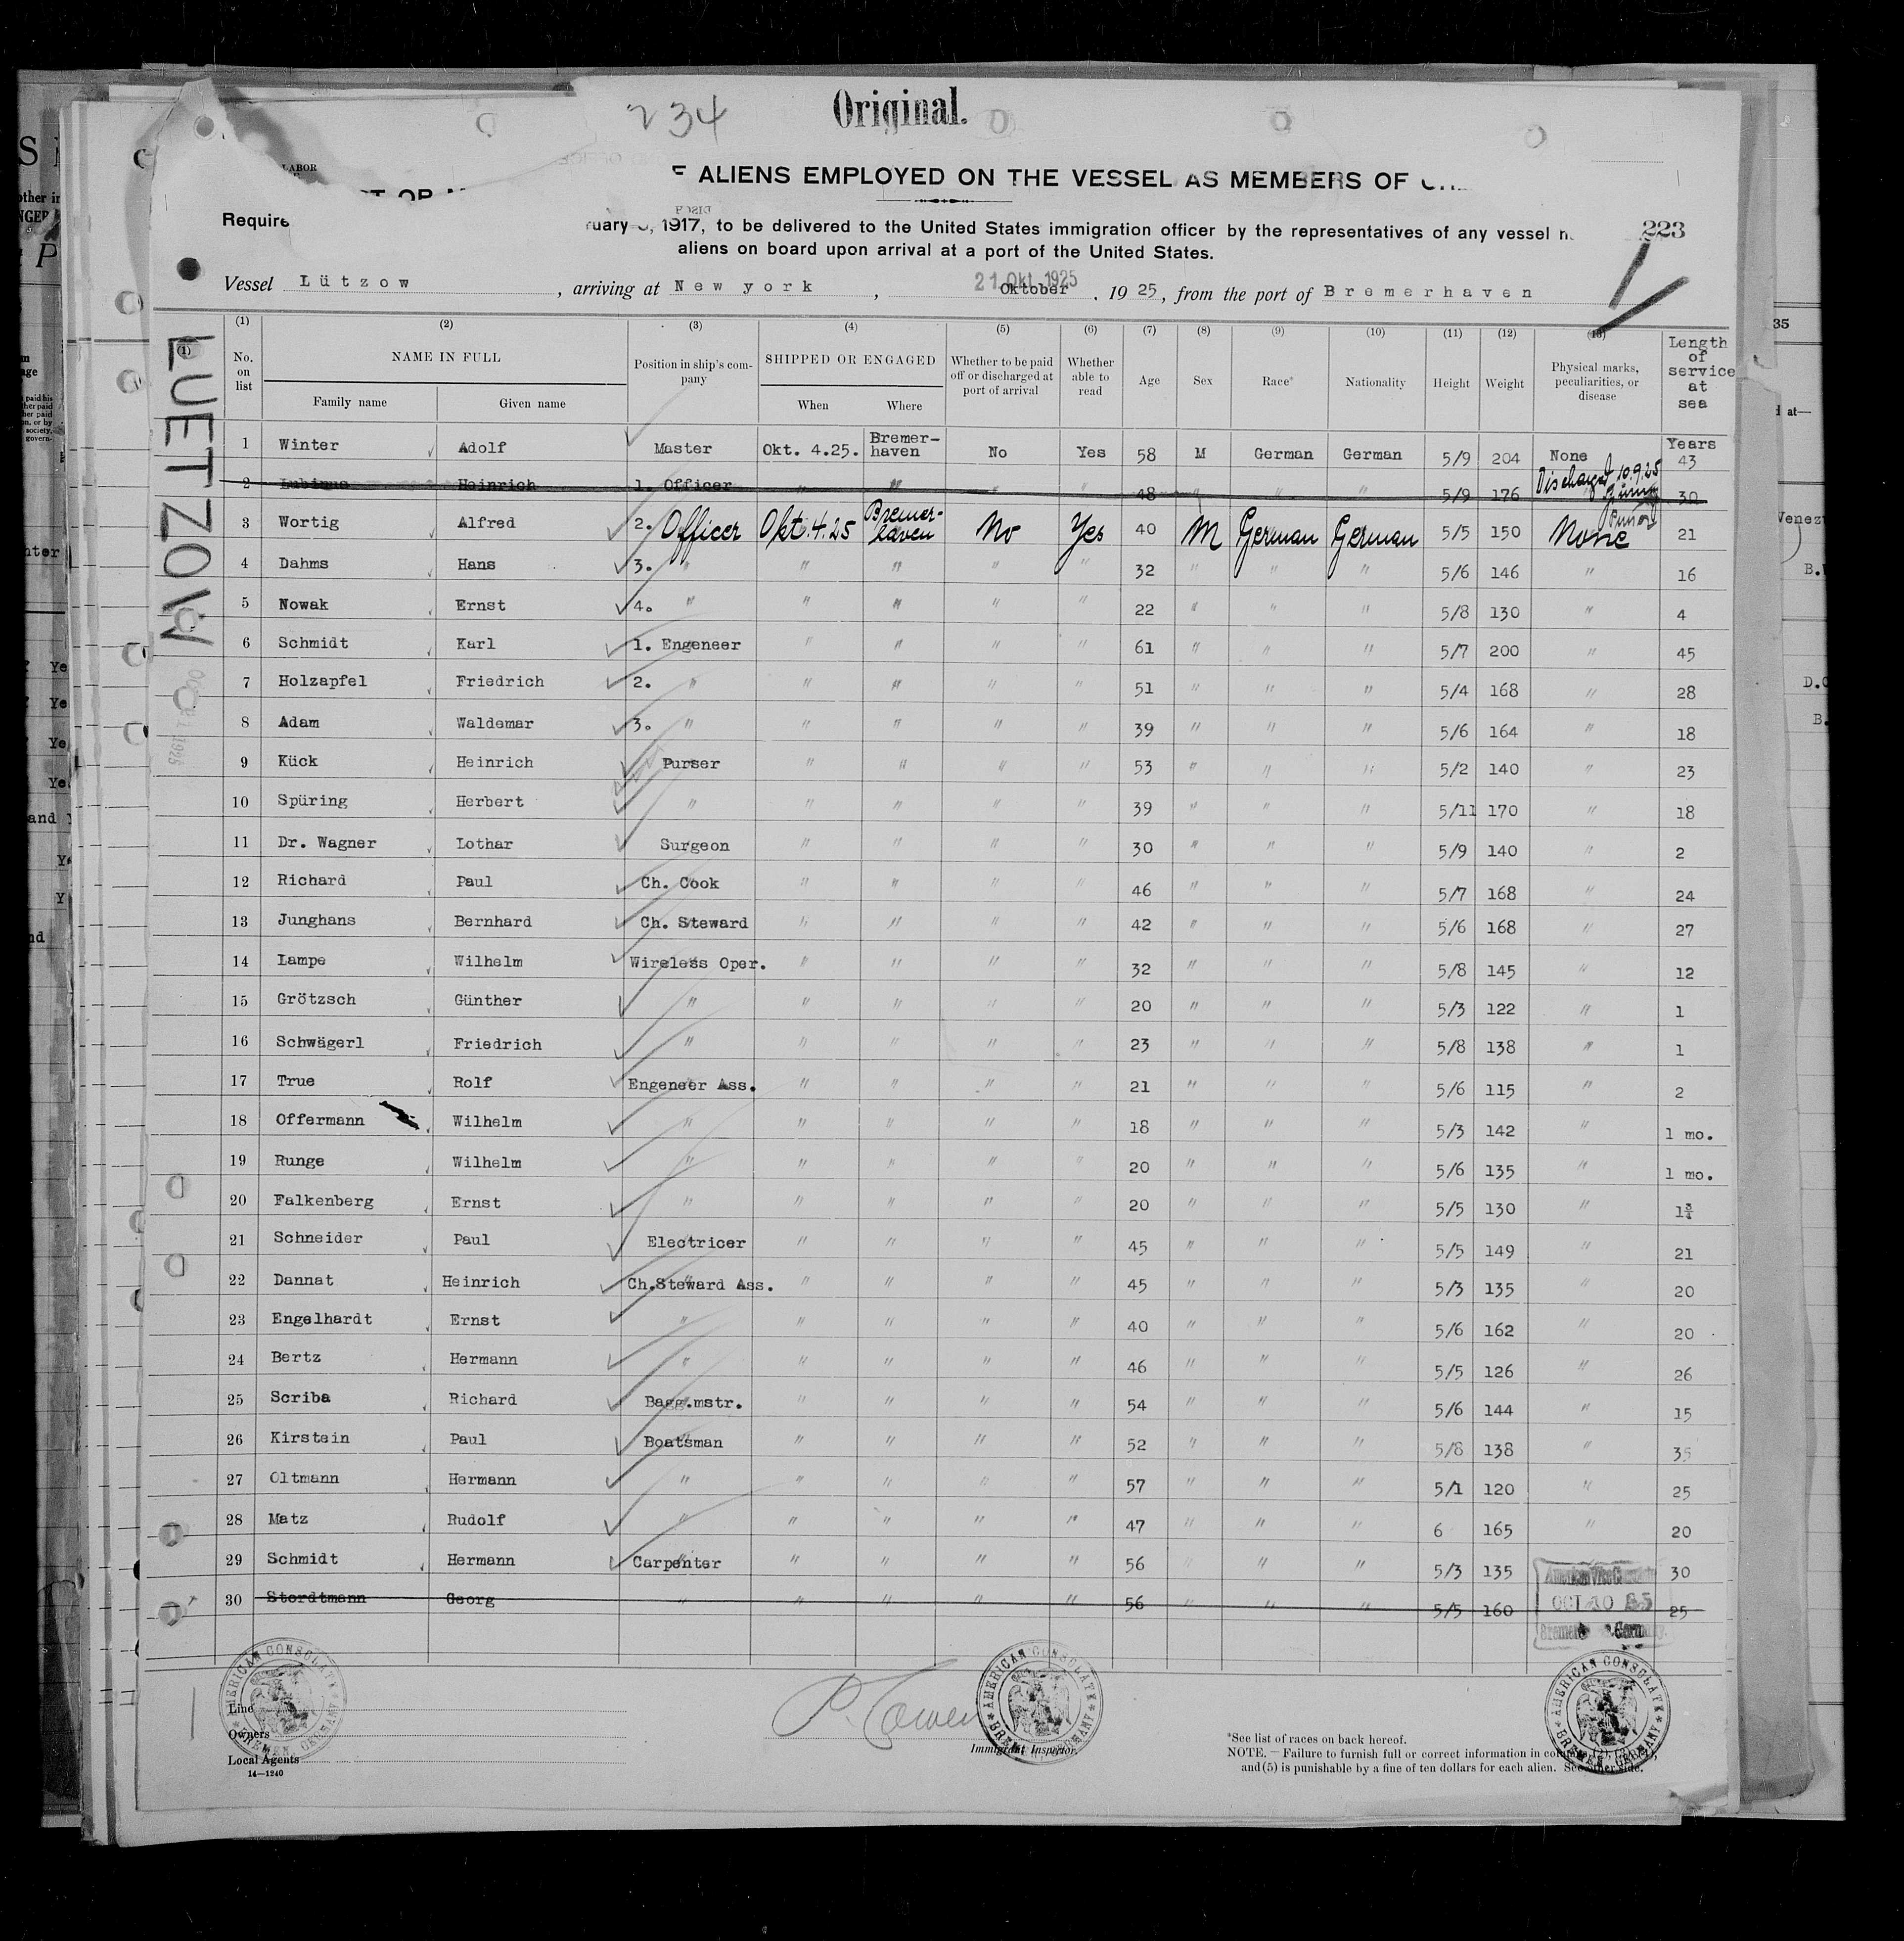 234
Original.
LABOR
ALIENS EMPLOYED ON THE VESSEL AS MEMBERS OF
Require
1917, to be delivered to the United States immigration officer by the representatives of any vessel
223
aliens on board upon arrival at a port of the United States.
Vessel Lützow, arriving at New york, 21 Okt. 1925 Oktober, 1925, from the port of Bremerhaven
LUETZOW
(1) (2) (3) (4) (5) (6) (7) (8) (9) (10) (11) (12) (13)
No. on list
NAME IN FULL
Family name Given name
Position in ship's company
SHIPPED OR ENGAGED
When Where
Whether to be paid off or discharged at port of arrival
Whether able to read
Age Sex Race* Nationality Height Weight
Physical marks, peculiarities, or disease
Length of service at sea
Years
1 Winter Adolf Master Okt. 4.25. Bremer-haven No Yes 58 M German German 5/9 204 None 43
2 Lubinus Heinrich 1. Officer " " " " 48 " " " 5/9 176 Discharged 10.9.25 30
3 Wortig Alfred 2. Officer Okt. 4.25 Bremer-haven No Yes 40 M German German 5/5 150 None 21
4 Dahms Hans 3. " " " " " 32 " " " 5/6 146 " 16
5 Nowak Ernst 4. " " " " " 22 " " " 5/8 130 " 4
6 Schmidt Karl 1. Engeneer " " " " 61 " " " 5/7 200 " 45
7 Holzapfel Friedrich 2. " " " " " 51 " " " 5/4 168 " 28
8 Adam Waldemar 3. " " " " " 39 " " " 5/6 164 " 18
9 Kück Heinrich Purser " " " " 53 " " " 5/2 140 " 23
10 Spüring Herbert " " " " " 39 " " " 5/11 170 " 18
11 Dr. Wagner Lothar Surgeon " " " " 30 " " " 5/9 140 " 2
12 Richard Paul Ch. Cook " " " " 46 " " " 5/7 168 " 24
13 Junghans Bernhard Ch. Steward " " " " 42 " " " 5/6 168 " 27
14 Lampe Wilhelm Wireless Oper. " " " " 32 " " " 5/8 145 " 12
15 Grötzsch Günther " " " " " 20 " " " 5/3 122 " 1
16 Schwägerl Friedrich " " " " " 23 " " " 5/8 138 " 1
17 True Rolf Engeneer Ass. " " " " 21 " " " 5/6 115 " 2
18 Offermann Wilhelm " " " " " 18 " " " 5/3 142 " 1 mo.
19 Runge Wilhelm " " " " " 20 " " " 5/6 135 " 1 mo.
20 Falkenberg Ernst " " " " " 20 " " " 5/5 130 " 1¾
21 Schneider Paul Electricer " " " " 45 " " " 5/5 149 " 21
22 Dannat Heinrich Ch.Steward Ass. " " " " 45 " " " 5/3 135 " 20
23 Engelhardt Ernst " " " " " 40 " " " 5/6 162 " 20
24 Bertz Hermann " " " " " 46 " " " 5/5 126 " 26
25 Scriba Richard Bagg.mstr. " " " " 54 " " " 5/6 144 " 15
26 Kirstein Paul Boatsman " " " " 52 " " " 5/8 138 " 35
27 Oltmann Hermann " " " " " 57 " " " 5/1 120 " 25
28 Matz Rudolf " " " " " 47 " " " 6 165 " 20
29 Schmidt Hermann Carpenter " " " " 56 " " " 5/3 135 30
30 Stordtmann Georg " " " " " 56 " " " 5/5 160 25
OCT 10 25
Germany
AMERICAN CONSULATE BREMEN, GERMANY
AMERICAN CONSULATE BREMEN, GERMANY
AMERICAN CONSULATE BREMEN, GERMANY
Line
Owners
Local Agents
14—1240
Immigrant Inspector.
*See list of races on back hereof.
NOTE.—Failure to furnish full or correct information in
and (5) is punishable by a fine of ten dollars for each alien. See other side.